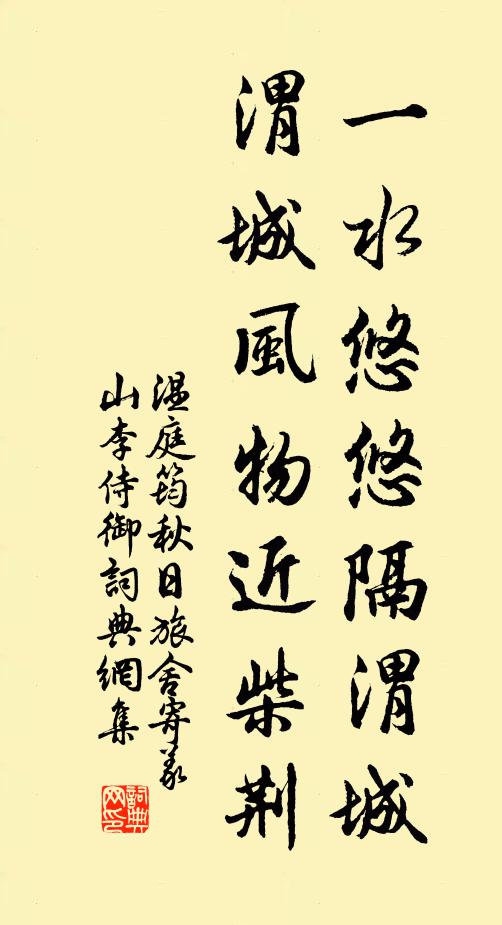 一水悠悠隔渭城
渭城風物近柴荆
温庭筠秋日旅舍寄義
山李侍御詞典網集
詞典
网印